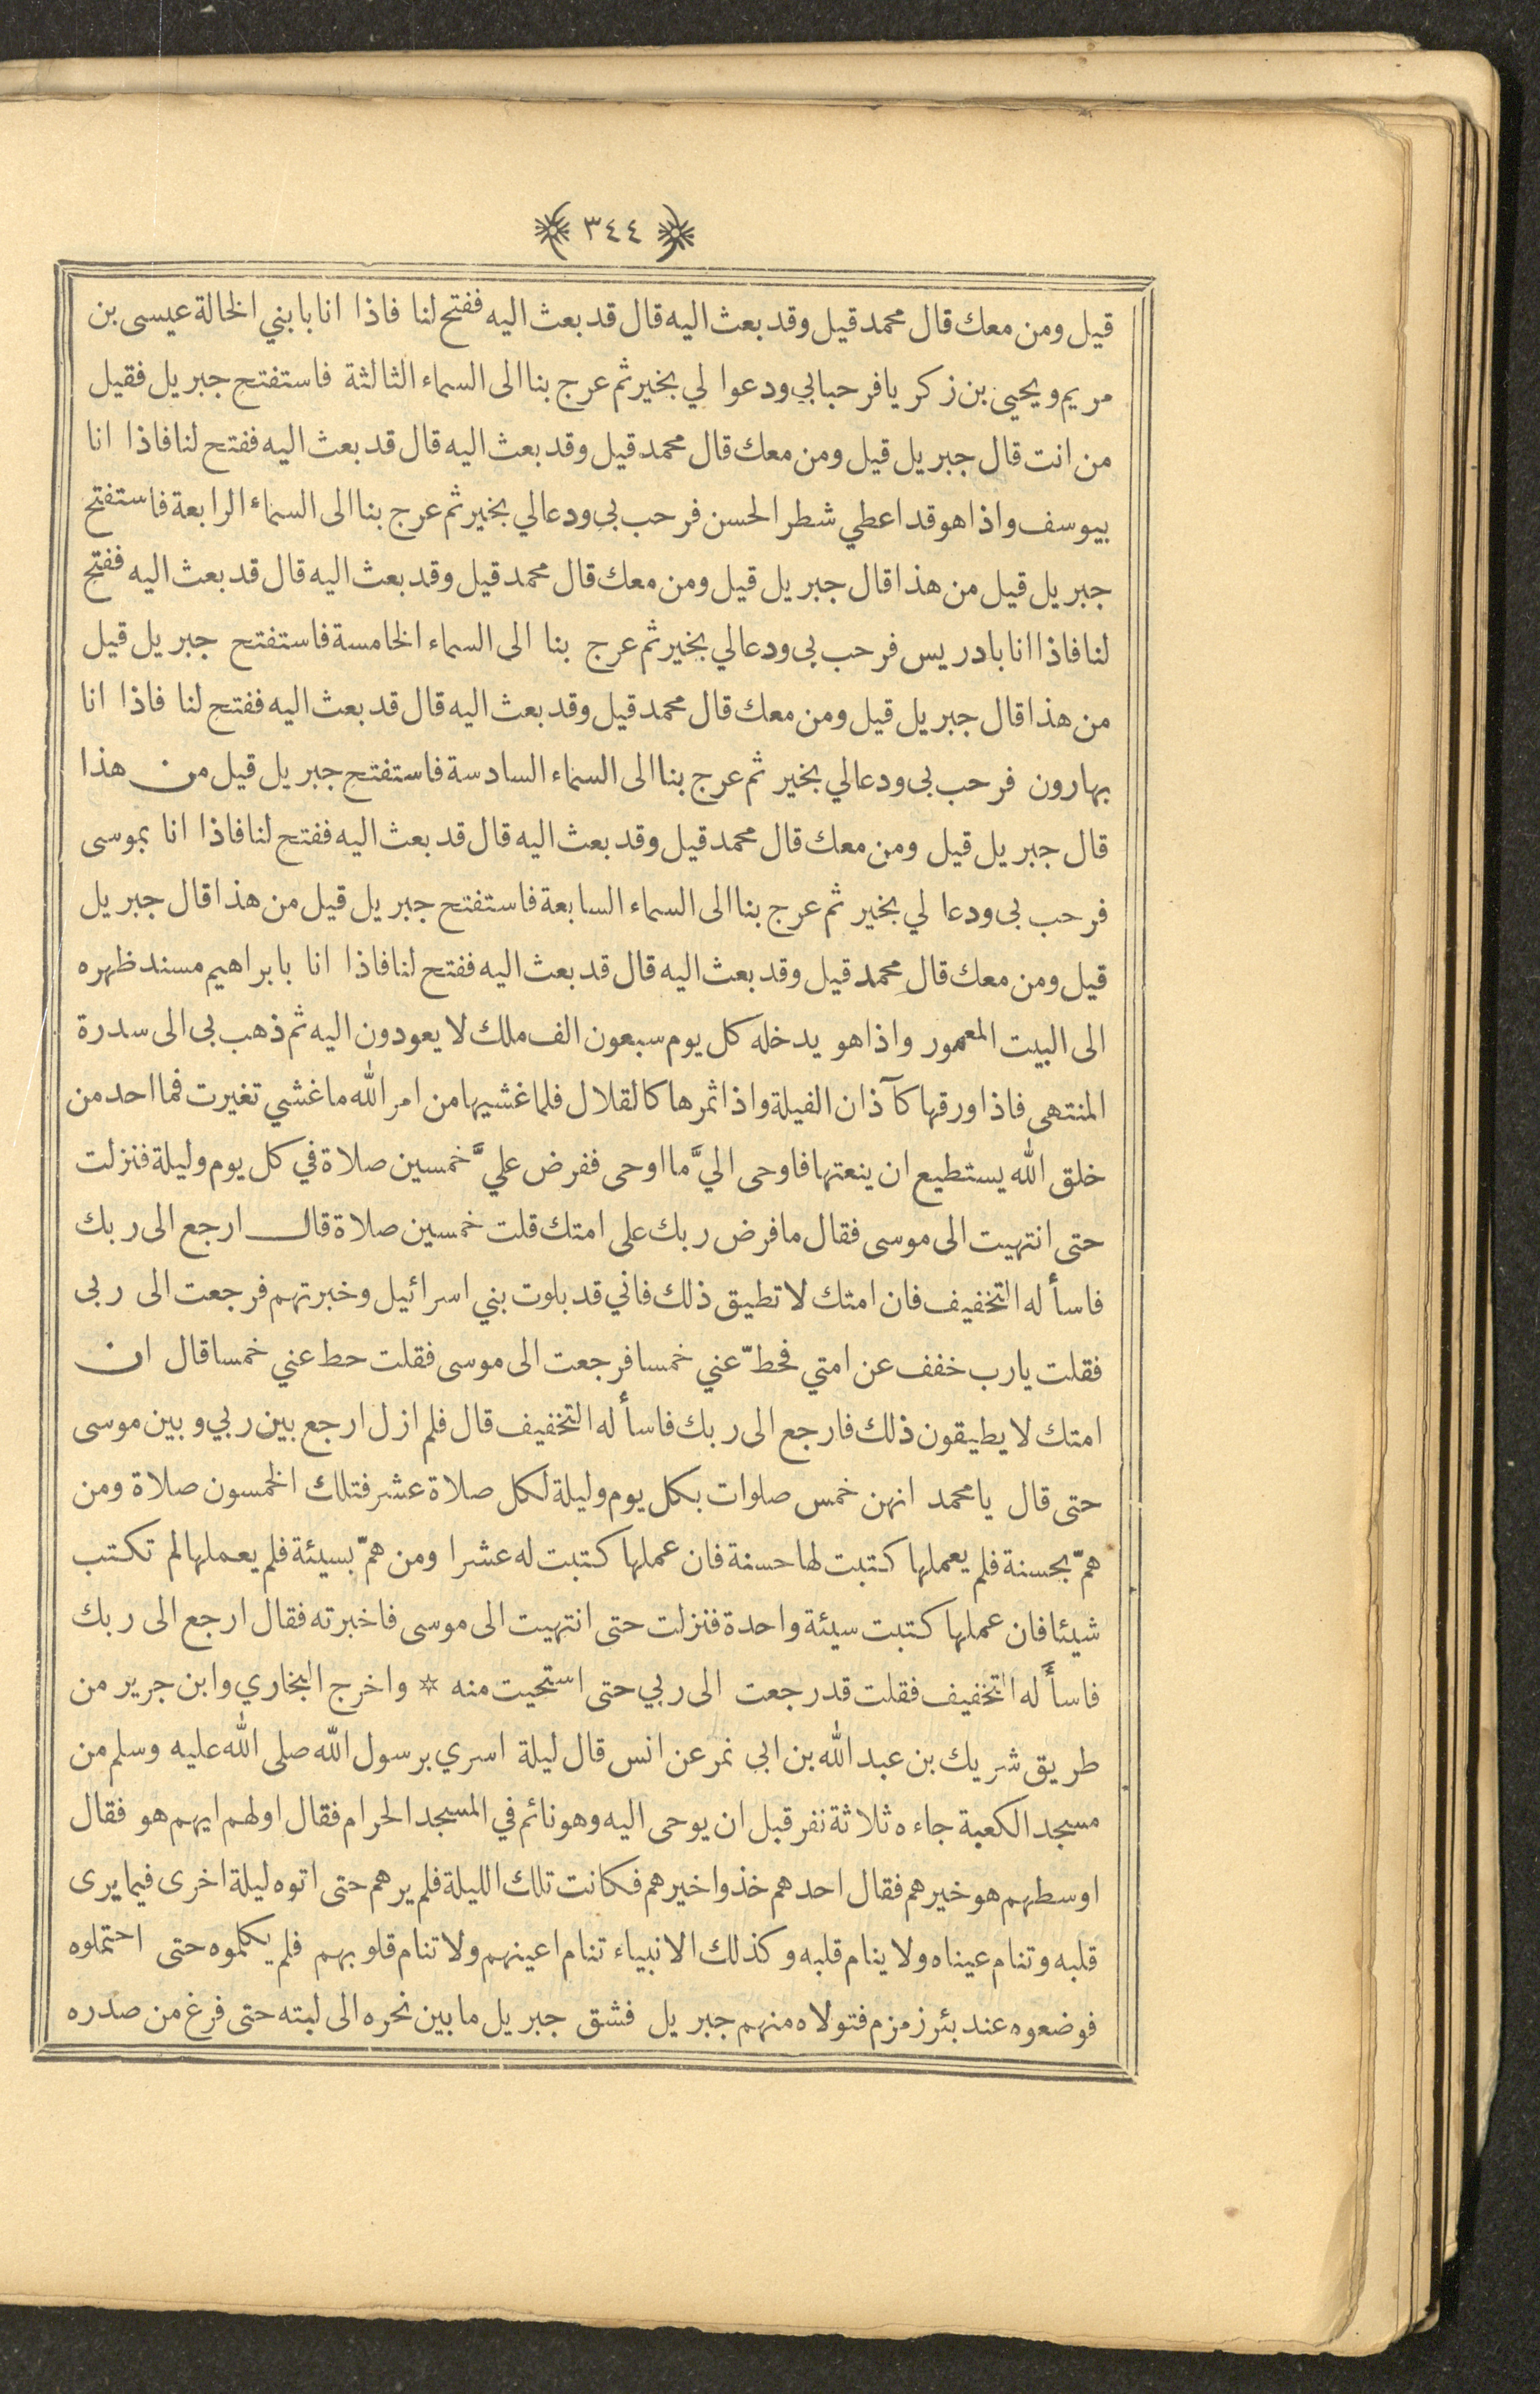 ٣٤٤
قيل ومن معك قال محمد قيل وقد بعث اليه قال قد بعث اليه ففتح لنا فاذا انا بابني الخالة عيسى بن
مريم ويحيى بن زكريا فرحبا بي ودعوا لي بخير ثم عرج بنا الى السماء الثالثة فاستفتح جبريل فقيل
من انت قال جبريل قيل ومن معك قال محمد قيل وقد بعث اليه قال قد بعث اليه ففتح لنا فاذا انا
بيوسف واذا هو قد اعطي شطر الحسن فرحب بي ودعا لي بخير ثم عرج بنا الى السماء الرابعة فاستفتح
جبريل قيل من هذا قال جبريل قيل ومن معك قال محمد قيل وقد بعث اليه قال قد بعث اليه ففتح
لنا فاذا انا بادريس فرحب بي ودعا لي بخير ثم عرج بنا الى السماء الخامسة فاستفتح جبريل قيل
من هذا قال جبريل قيل ومن معك قال محمد قيل وقد بعث اليه قال قد بعث اليه ففتح لنا فاذا انا
بهارون فرحب بى ودعا لي بخير ثم عرج بنا الى السماء السادسة فاستفتح جبريل قيل من هذا
قال جبريل قيل ومن معك قال محمد قيل وقد بعث اليه قال قد بعث اليه ففتح لنا فاذا انا بموسى
فرحب بى ودعا لي بخير ثم عرج بنا الى السماء السابعة فاستفتح جبريل قيل من هذا قال جبريل
قيل ومن معك قال محمد قيل وقد بعث اليه قال قد بعث اليه ففتح لنا فاذا انا بابراهيم مسند ظهره
الى البيت المعمور واذا هو يدخله كل يوم سبعون الف ملك لا يعودون اليه ثم ذهب بى الى سدرة
المنتهى فاذا ورقها كآذان الفيلة واذا ثمرها كالقلال فلما غشيها من امر الله ما غشي تغيرت فما احد من
خلق الله يستطيع ان ينعتها فاوحى اليَّ ما اوحى ففرض عليَّ خمسين صلاة في كل يوم وليلة فنزلت
حتى انتهيت الى موسى فقال ما فرض ربك على امتك قلت خمسين صلاة قال ارجع الى ربك
فاسأله التخفيف فان امتك لا تطيق ذلك فاني قد بلوت بني اسرائيل وخبرتهم فرجعت الى ربى
فقلت يارب خفف عن امتي فحطّ عني خمسا فرجعت الى موسى فقلت حط عني خمسا قال ان
امتك لا يطيقون ذلك فارجع الى ربك فاسأله التخفيف قال فلم ازل ارجع بين ربي وبين موسى
حتى قال يا محمد انهن خمس صلوات بكل يوم وليلة لكل صلاة عشر فتلك الخمسون صلاة ومن
همّ بحسنة فلم يعملها كتبت لها حسنة فان عملها كتبت له عشرا ومن همّ بسيئة فلم يعملها لم تكتب
شيئا فان عملها كتبت سيئة واحدة فنزلت حتى انتهيت الى موسى فاخبرته فقال ارجع الى ربك
فاسأله التخفيف فقلت قد رجعت الى ربي حتى استحيت منه * واخرج البخاري وابن جرير من
طريق شريك بن عبد الله بن ابي نمر عن انس قال ليلة اسري برسول الله صلى الله عليه وسلم من
مسجد الكعبة جاءه ثلاثة نفر قبل ان يوحى اليه وهو نائم في المسجد الحرام فقال اولهم ايهم هو فقال
اوسطهم هو خيرهم فقال احدهم خذوا خيرهم فكانت تلك الليلة فلم يرهم حتى اتوه ليلة اخرى فيما يرى
قلبه وتنام عيناه ولا ينام قلبه وكذلك الانبياء تنام اعينهم ولا تنام قلوبهم فلم يكلموه حتى احتملوه
فوضعوه عند بئر زمزم فتولاه منهم جبريل فشق جبريل ما بين نحره الى لبته حتى فرغ من صدره